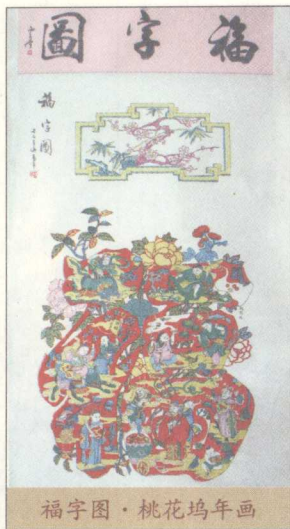 福字圖
福字圖
福字图·桃花坞年画